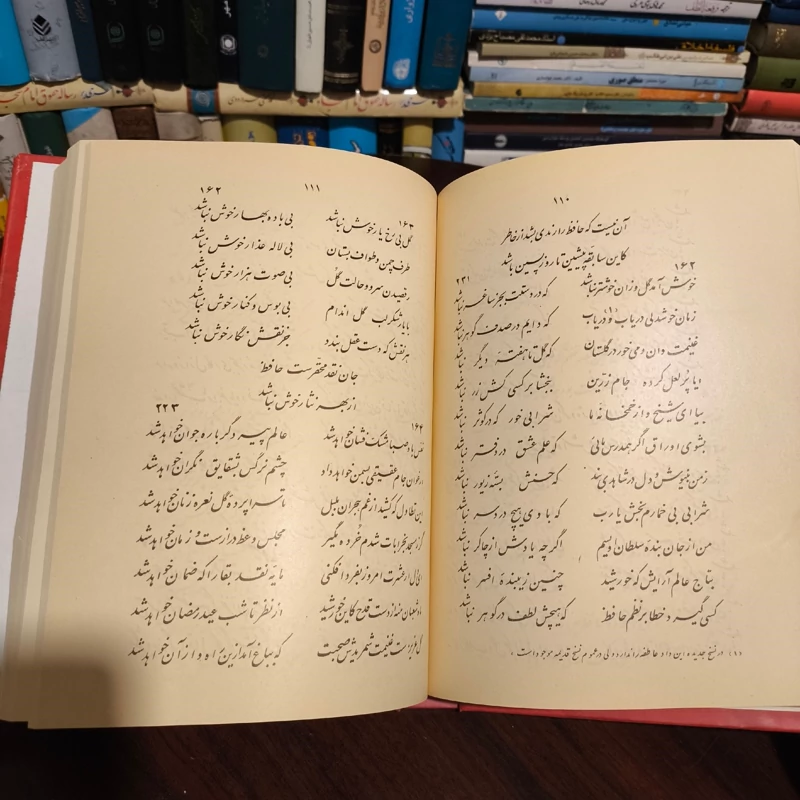 ۱۱۰
آن نیست که حافظ را رندی بشد از خاطر
کاین سابقهٔ پیشین تا روز پسین باشد
۱۶۲
۲۳۱
خوش آمد گل وزان خوشتر نباشد که در دستت بجز ساغر نباشد
زمان خوشدلی دریاب و (۱) دریاب که دایم در صدف گوهر نباشد
غنیمت دان و می خور در گلستان که گل تا هفتهٔ دیگر نباشد
ایا پر لعل کرده جام زرین ببخشا بر کسی کش زر نباشد
بیا ای شیخ و از خمخانهٔ ما شرابی خور که در کوثر نباشد
بشوی اوراق اگر همدرس مائی که علم عشق در دفتر نباشد
ز من بنیوش و دل در شاهدی بند که حسنش بستهٔ زیور نباشد
شرابی بی خمارم بخش یا رب که با وی هیچ درد سر نباشد
من از جان بندهٔ سلطان اویسم اگر چه یادش از چاکر نباشد
بتاج عالم آرایش که خورشید چنین زیبندهٔ افسر نباشد
کسی گیرد خطا بر نظم حافظ که هیچش لطف در گوهر نباشد
(۱) در نسخ جدیده این واو عاطفه را ندارد ولی در عموم نسخ قدیمه موجود است،
۱۱۱
۱۶۲
۱۶۳
گل بی رخ یار خوش نباشد بی باده بهار خوش نباشد
طرف چمن و طواف بستان بی لاله عذار خوش نباشد
رقصیدن سرو و حالت گل بی صوت هزار خوش نباشد
با یار شکرلب گل اندام بی بوس و کنار خوش نباشد
هر نقش که دست عقل بندد جز نقش نگار خوش نباشد
جان نقد محقرست حافظ
از بهر نثار خوش نباشد
۱۶۴
۲۲۳
نفس باد صبا مشک فشان خواهد شد عالم پیر دگر باره جوان خواهد شد
ارغوان جام عقیقی بسمن خواهد داد چشم نرگس بشقایق نگران خواهد شد
این تطاول که کشید از غم هجران بلبل تا سراپردهٔ گل نعره زنان خواهد شد
گر ز مسجد بخرابات شدم خرده مگیر مجلس وعظ درازست و زمان خواهد شد
ای دل ار عشرت امروز بفردا فکنی مایهٔ نقد بقا را که ضمان خواهد شد
ماه شعبان منه از دست قدح کاین خورشید از نظر تا شب عید رمضان خواهد شد
گل عزیزست غنیمت شمریدش صحبت که بباغ آمد ازین راه و از آن خواهد شد